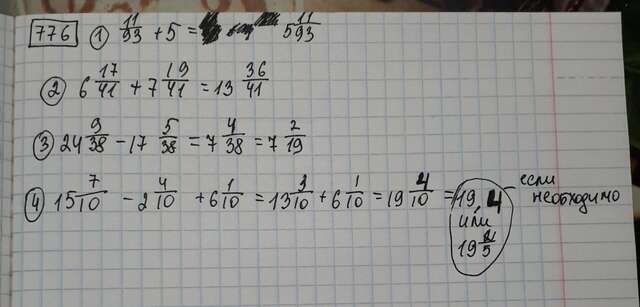 776 1) 11/93 + 5 = 5 11/93
2) 6 17/41 + 7 19/41 = 13 36/41
3) 24 9/38 - 17 5/38 = 7 4/38 = 7 2/19
4) 15 7/10 - 2 4/10 + 6 1/10 = 13 3/10 + 6 1/10 = 19 4/10 = 19,4 если необходимо
или
19 2/5